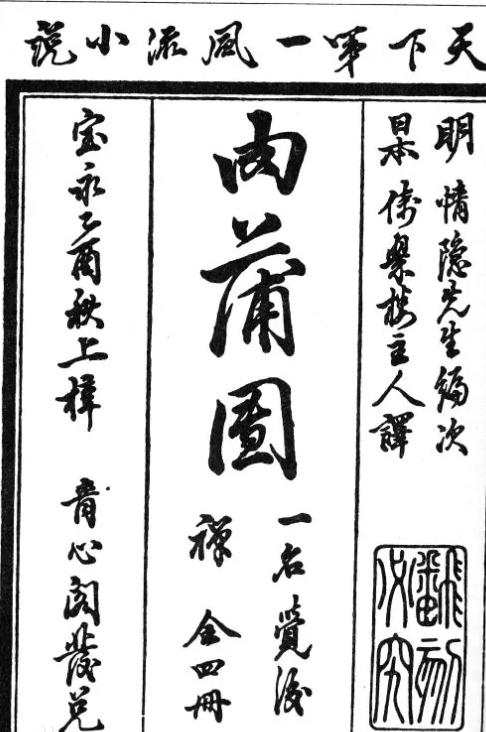 天下第一風流小說
明 情隠先生編次
日本 倚翠楼主人譯
飜刻必究
肉蒲團
一名覺後
禅 全四冊
宝永乙酉秋上梓 青心閣發兌